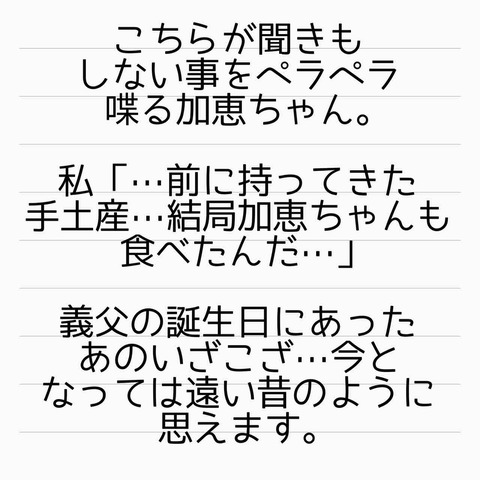 こちらが聞きも
しない事をペラペラ
喋る加恵ちゃん。
私「…前に持ってきた
手土産…結局加恵ちゃんも
食べたんだ…」
義父の誕生日にあった
あのいざこざ…今と
なっては遠い昔のように
思えます。